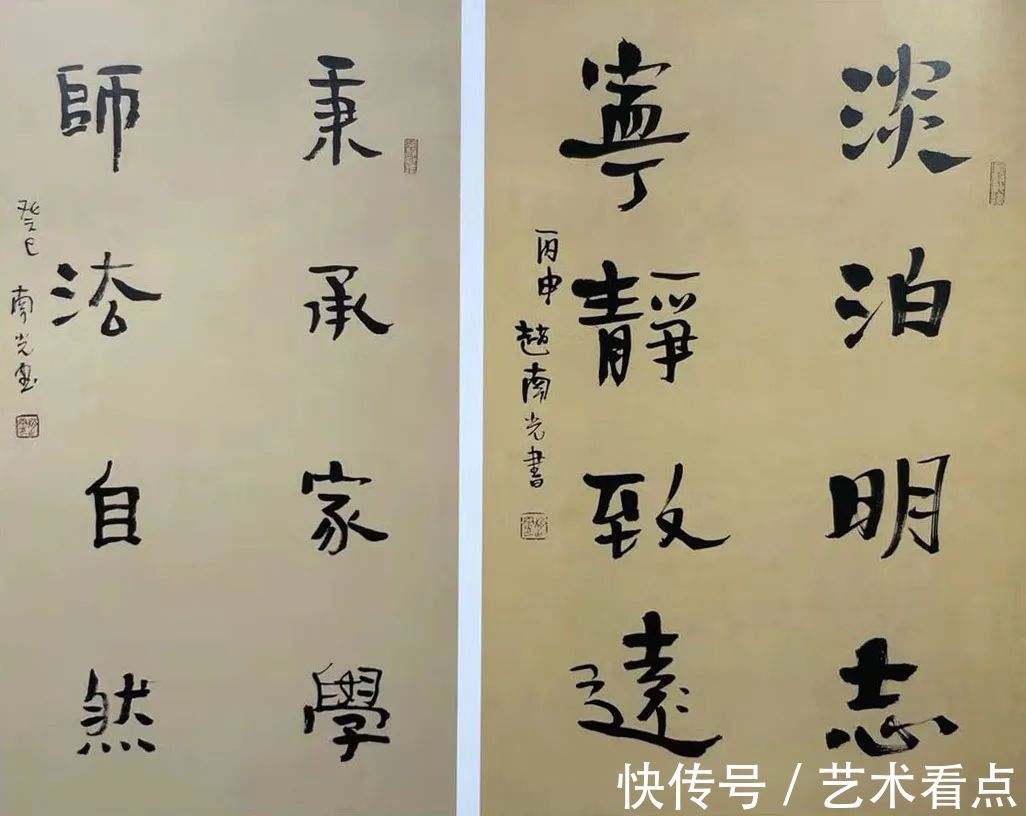 淡泊明志
寧靜致遠
丙申 趙南光書
秉承家學
師法自然
癸巳 南光書
快传号 / 艺术看点